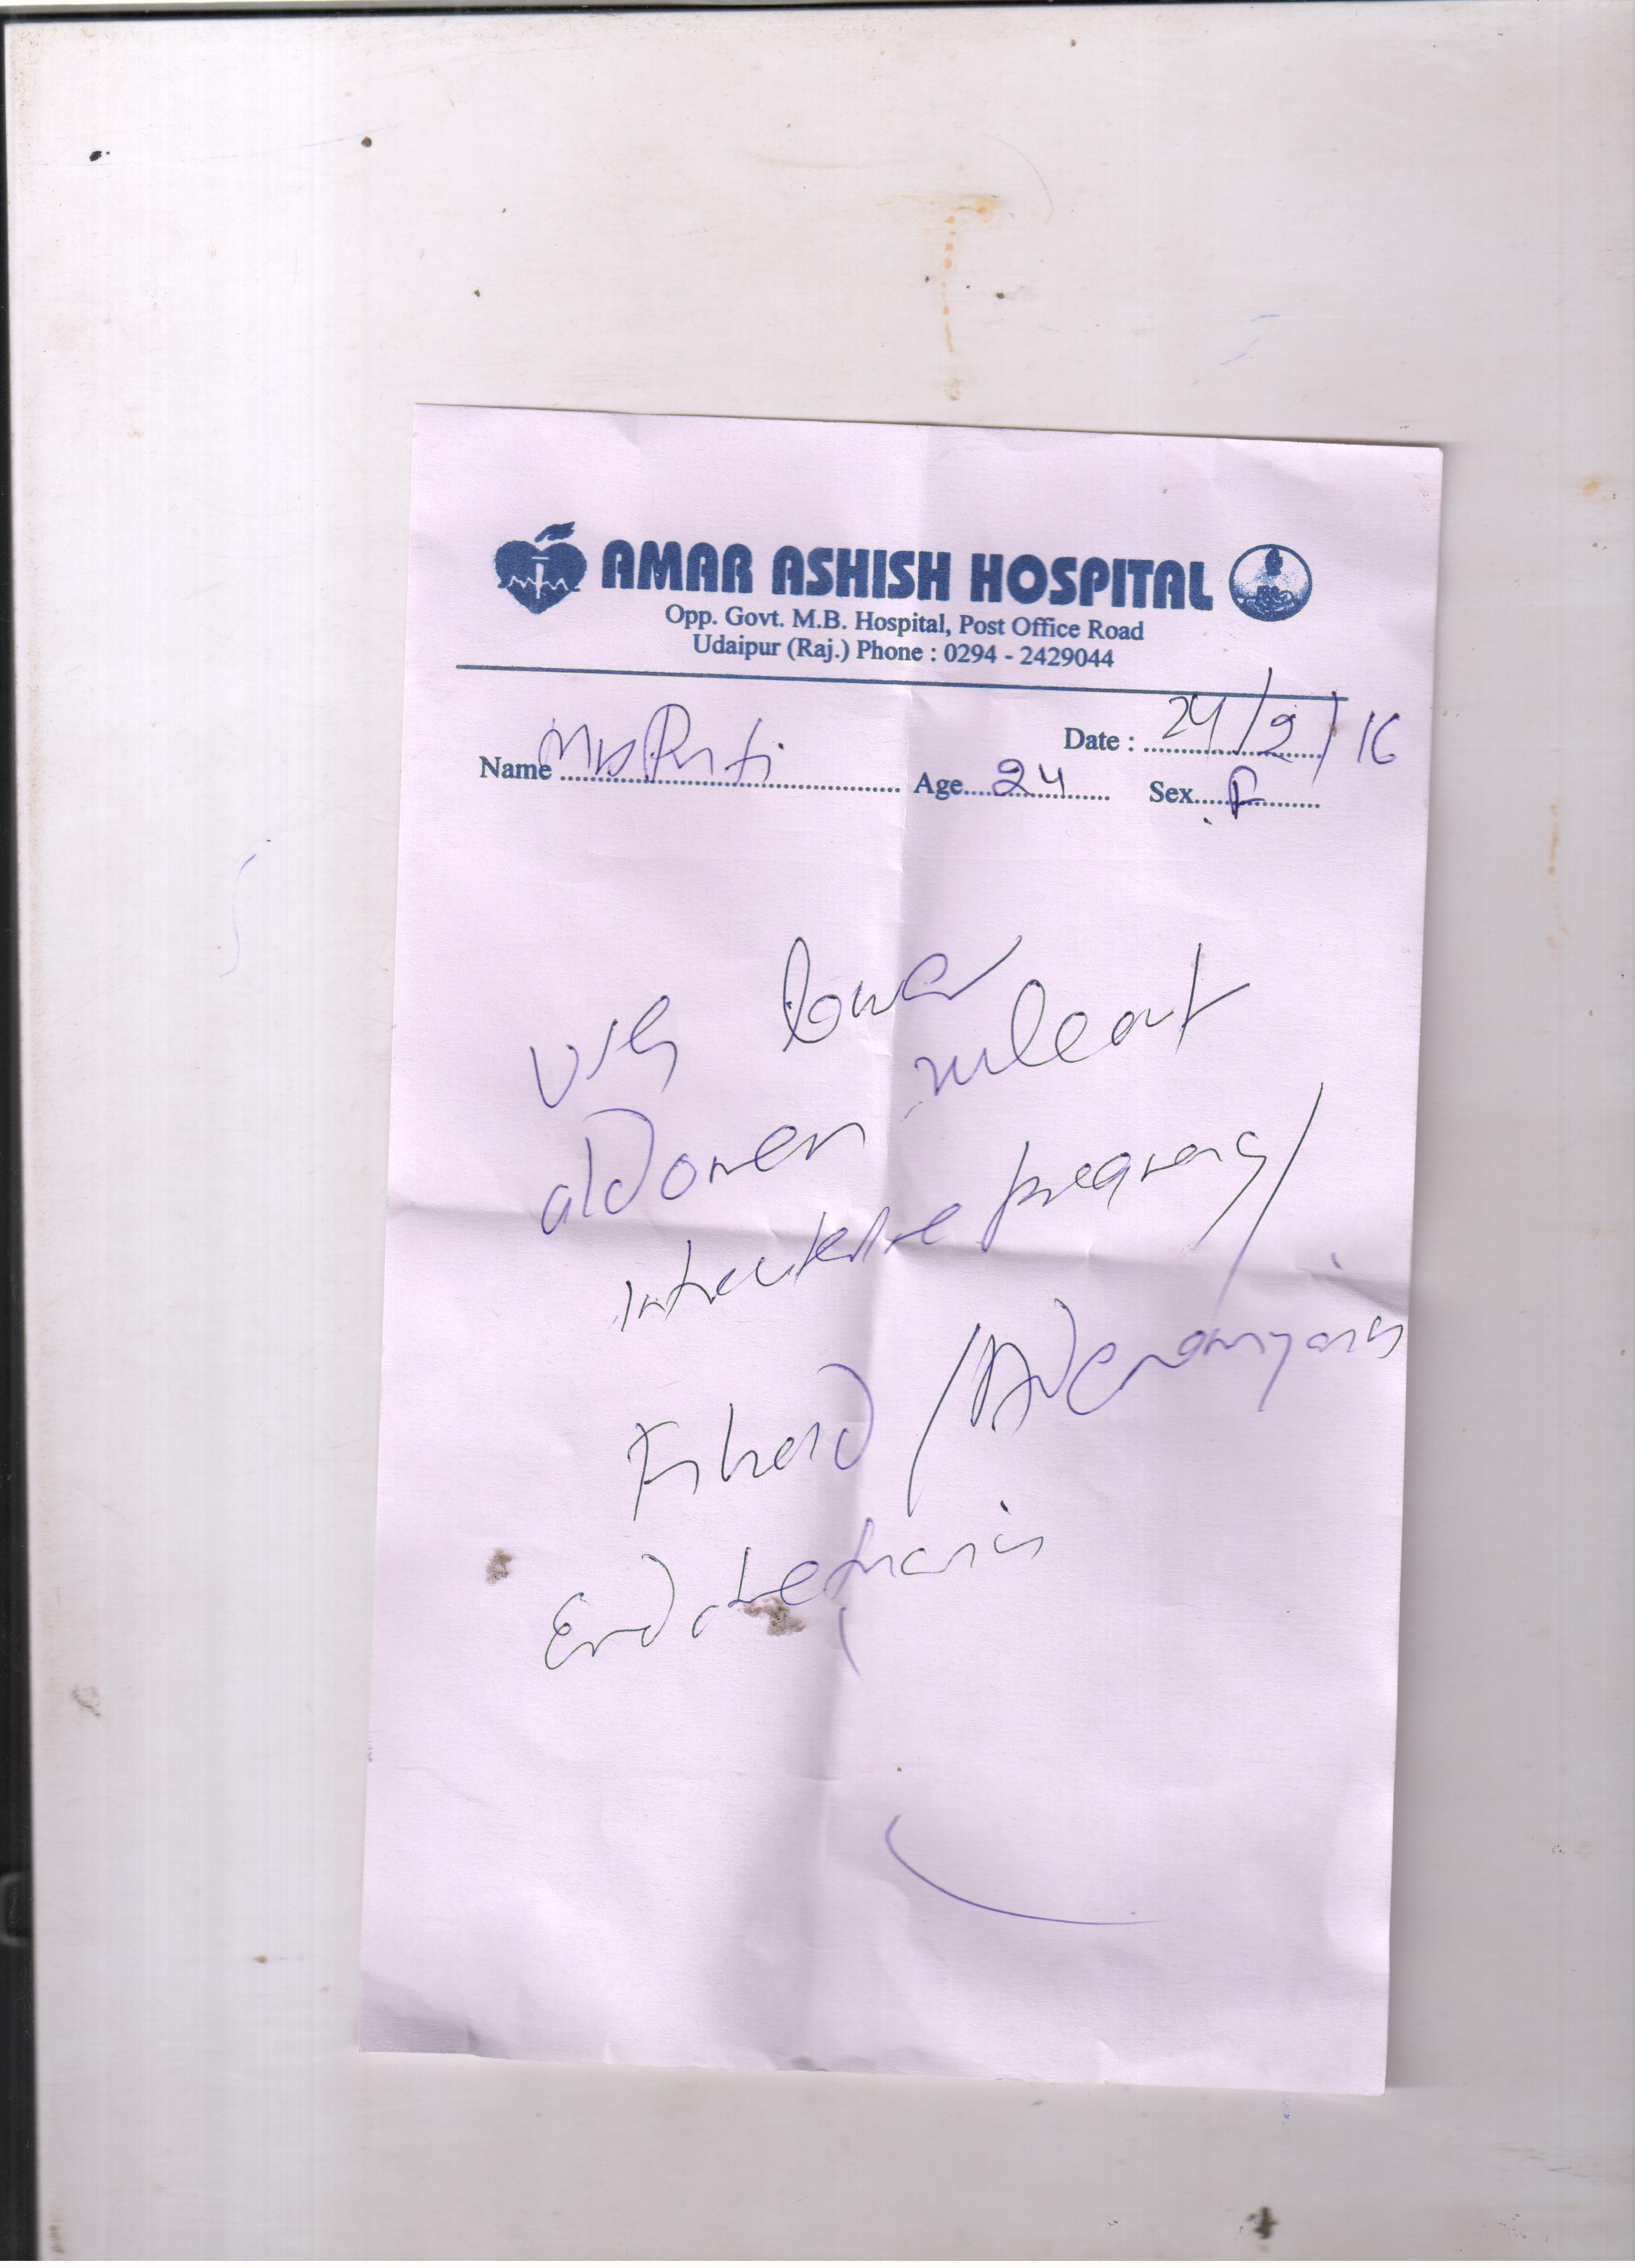 AMAR ASHISH HOSPITAL
Opp. Govt. M.B. Hospital, Post Office Road
Udaipur (Raj.) Phone : 0294 - 2429044
Date : 24/2/16
Name Mrs Age 24 Sex F
USG lower
abdomen ruleout
intrauterine pregnancy/
Fibroid /Adenomyosis
Endometriosis